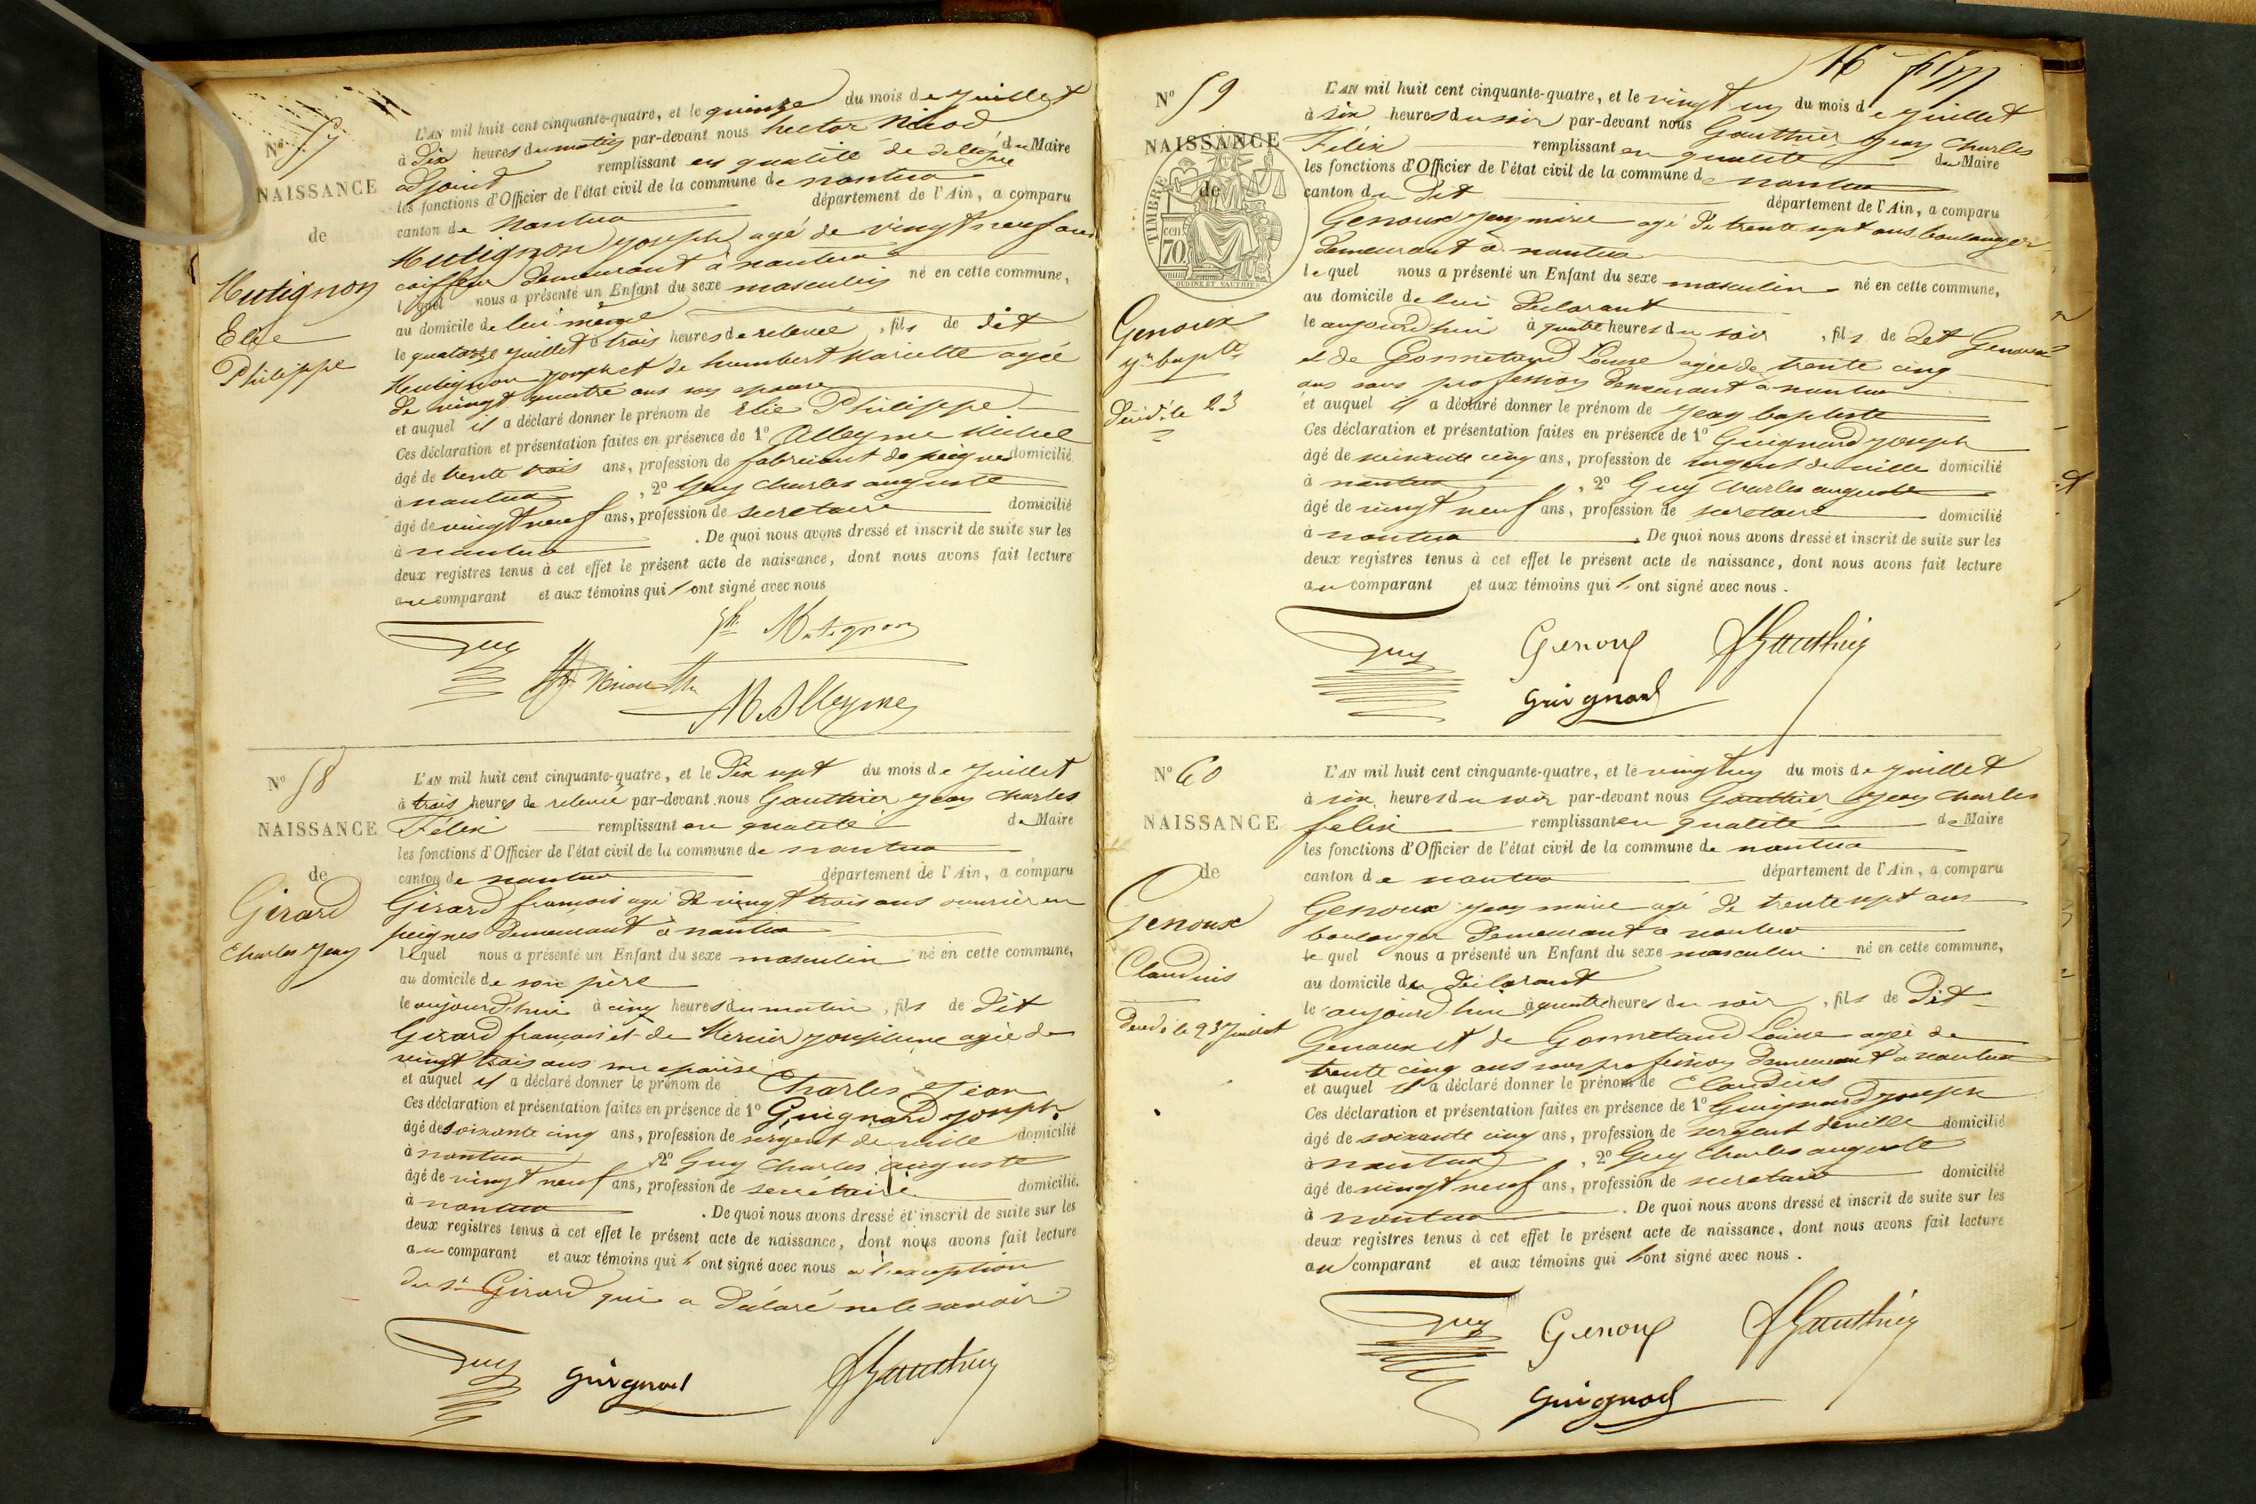 Nº 57
NAISSANCE
de
Mutignon
Elie
Philippe
L'AN mil huit cent cinquante-quatre, et le quinze du mois de juillet
à dix heures du matin par-devant nous hector Nicod
adjoint remplissant en qualité de délégué du Maire
les fonctions d'Officier de l'état civil de la commune de nantua
canton de Nantua département de l'Ain, a comparu
Mutignon joseph agé de vingt neuf ans
coiffeur demeurant à nantua
lequel nous a présenté un Enfant du sexe masculin né en cette commune,
au domicile de lui même
le quatorze juillet à trois heures de relevée, fils de dit
Mutignon joseph et de humbert Mariette agée
de vingt quatre ans son épouse
et auquel il a déclaré donner le prénom de Elie Philippe
Ces déclaration et présentation faites en présence de 1º Alleyme Michel
âgé de trente trois ans, profession de fabricant de peignes domicilié
à nantua, 2º Guy Charles auguste
âgé de vingt neuf ans, profession de secretaire domicilié
à nantua. De quoi nous avons dressé et inscrit de suite sur les
deux registres tenus à cet effet le présent acte de naissance, dont nous avons fait lecture
au comparant et aux témoins qui l'ont signé avec nous
Jh Mutignon
Guy
M. Alleyme
Nº 58
NAISSANCE
de
Girard
Charles Jean
L'AN mil huit cent cinquante-quatre, et le Dix sept du mois de juillet
à trois heures de relevée par-devant nous Gautthier jean Charles
Félix remplissant en qualité de Maire
les fonctions d'Officier de l'état civil de la commune de nantua
canton de nantua département de l'Ain, a comparu
Girard françois agé de vingt trois ans ouvrier en
peignes demeurant à nantua
lequel nous a présenté un Enfant du sexe masculin né en cette commune,
au domicile de son père
le aujourd'hui à cinq heures du matin, fils de dit
Girard françois et de Mercier josephine agée de
vingt trois ans son épouse
et auquel il a déclaré donner le prénom de Charles Jean
Ces déclaration et présentation faites en présence de 1º Guignard joseph
âgé de soixante cinq ans, profession de sergent de ville domicilié
à nantua, 2º Guy Charles auguste
âgé de vingt neuf ans, profession de secrétaire domicilié.
à nantua. De quoi nous avons dressé et inscrit de suite sur les
deux registres tenus à cet effet le présent acte de naissance, dont nous avons fait lecture
au comparant et aux témoins qui l'ont signé avec nous a l'exception
du sr Girard qui a déclaré ne le savoir
Guy Guignard Gautthier
Nº 59
NAISSANCE
de
TIMBRE
cen
70
OUDINÉ ET VAUTHIER
Genoux
jn bapte
décédé le 23
L'AN mil huit cent cinquante-quatre, et le vingt un du mois de juillet
à six heures du soir par-devant nous Gautthier Jean Charles
Félix remplissant en qualité de Maire
les fonctions d'Officier de l'état civil de la commune de nantua
canton du dit département de l'Ain, a comparu
Genoux jean marie agé de trente sept ans boulanger
demeurant à nantua
lequel nous a présenté un Enfant du sexe masculin né en cette commune,
au domicile de lui déclarant
le aujourd'hui à quatre heures du soir, fils de dit Genoux
et de Gonnetand Louise agée de trente cinq
ans sans profession demeurant à nantua
et auquel il a déclaré donner le prénom de jean baptiste
Ces déclaration et présentation faites en présence de 1º Guignard joseph
âgé de soixante cinq ans, profession de sergent de ville domicilié
à nantua, 2º Guy Charles auguste
âgé de vingt neuf ans, profession de secretaire domicilié
à nantua. De quoi nous avons dressé et inscrit de suite sur les
deux registres tenus à cet effet le présent acte de naissance, dont nous avons fait lecture
au comparant et aux témoins qui l'ont signé avec nous.
Guy Genoux Gautthier
Guignard
Nº 60
NAISSANCE
de
Genoux
Claudius
Décédé le 23 juillet
L'AN mil huit cent cinquante-quatre, et le vingt un du mois de juillet
à six heures du soir par-devant nous Gautthier Jean Charles
felix remplissant en qualité de Maire
les fonctions d'Officier de l'état civil de la commune de nantua
canton de nantua département de l'Ain, a comparu
Genoux jean marie agé de trente sept ans
boulanger demeurant à nantua
lequel nous a présenté un Enfant du sexe masculin né en cette commune,
au domicile du déclarant
le aujourd'hui à quatre heures du soir, fils de Dit
Genoux et de Gonnetand Louise agée de
trente cinq ans sans profession demeurant a nantua
et auquel il a déclaré donner le prénom de Claudius
Ces déclaration et présentation faites en présence de 1º Guignard joseph
âgé de soixante cinq ans, profession de sergent de ville domicilié
à nantua, 2º Guy Charles auguste
âgé de vingt neuf ans, profession de secretaire domicilié
à nantua. De quoi nous avons dressé et inscrit de suite sur les
deux registres tenus à cet effet le présent acte de naissance, dont nous avons fait lecture
au comparant et aux témoins qui l'ont signé avec nous.
Guy Genoux Gautthier
Guignard